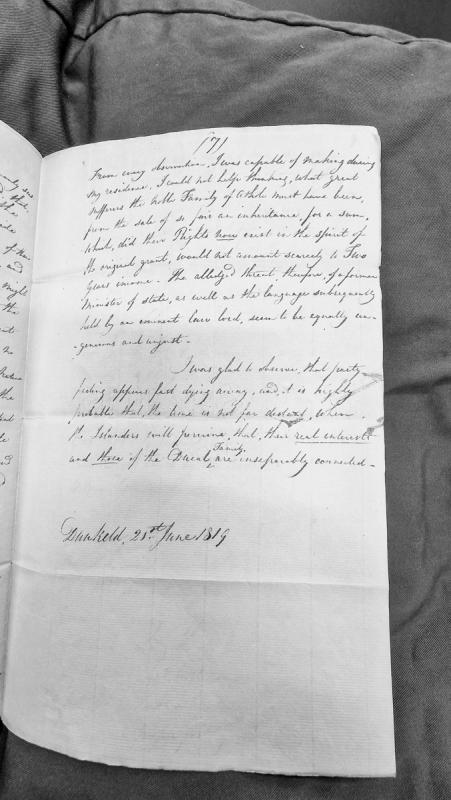 (7)
From every observation, I was capable of making during
my residence, I could not help thinking, what great
sufferers the Noble Family of Athole must have been,
from the sale of so fair an inheritance, for a sum,
which, did their Rights now exist in the spirit of
the original grant, would not amount scarcely to Two
Years income. The alledged threat therefore, of a former
Minister of state, as well as the language subsequently
held by an eminent law lord, seem to be equally un-
-generous and unjust.
I was glad to observe, that party
feeling appears fast dying away, and, it is highly
probable that, the time is not far distant, when,
the Islanders will perceive, that, their real interests
and those of the Ducal Family are inseparably connected.
Dunkeld, 21st June 1819
of
and
might
the
no
the
and